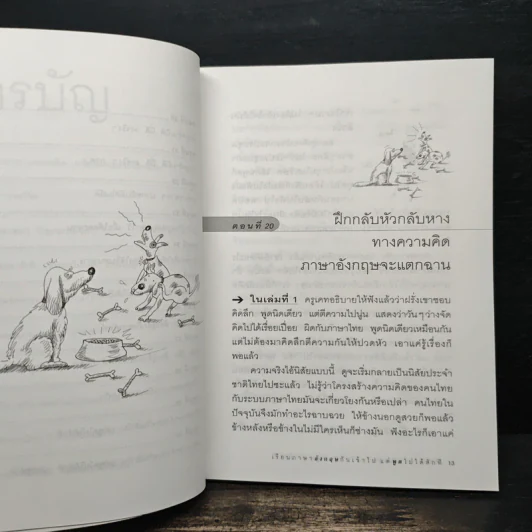 รบัญ
ตอนที่ 20
ฝึกกลับหัวกลับหาง
ทางความคิด
ภาษาอังกฤษจะแตกฉาน
➔ ในเล่มที่ 1 ครูเคทอธิบายให้ฟังแล้วว่าฝรั่งเขาชอบ
คิดลึก พูดนิดเดียว แต่ตีความไปนู่น แสดงว่าวันๆว่างจัด
คิดไปได้เรื่อยเปื่อย ผิดกับภาษาไทย พูดนิดเดียวเหมือนกัน
แต่ไม่ต้องมาคิดลึกตีความกันให้ปวดหัว เอาแค่รู้เรื่องก็
พอแล้ว
ความจริงไอ้นิสัยแบบนี้ ดูจะเริ่มกลายเป็นนิสัยประจำ
ชาติไทยไปซะแล้ว ไม่รู้ว่าโครงสร้างความคิดของคนไทย
กับระบบภาษาไทยมันจะเกี่ยวโยงกันหรือเปล่า คนไทยใน
ปัจจุบันจึงมักทำอะไรฉาบฉวย ให้ข้างนอกดูสวยก็พอแล้ว
ข้างหลังหรือข้างในไม่มีใครเห็นก็ช่างมัน ฟังอะไรก็เอาแค่
เรียนภาษาอังกฤษกันเข้าไป แต่พูดไม่ได้สักที 13